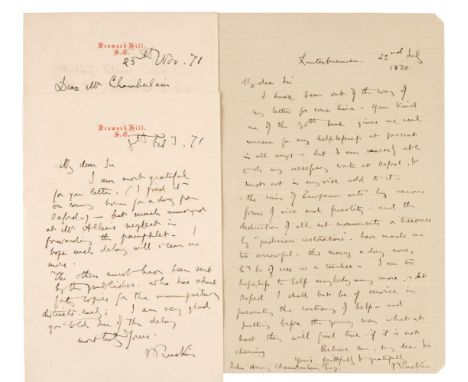 Denmark Hill,
S.E.
25th Nov. 71
Dear Mr Chamberlain
Denmark Hill,
S.E.
Feb 3. 71
My dear Sir
I am most grateful
for your letter. (I find it
on coming home for a day from
Oxford,) – but much annoyed
at Mr Allen's neglect in
forwarding the pamphlet – I
hope such delay will occur no
more.
The others must have been sent
by the publisher. who has about
forty copies for the manufacturing
districts only; I am very glad
you told me of the delay
most truly Yours.
J Ruskin
Lauterbrunnen. 22nd July
1870.
My dear Sir
I have been out of the way of
my letters for some time – Your kind
one of the 30th June gives me real
for my helplessness at present
in all ways – but I am
my necessary work at Oxford, &
must not in any wise add to it –
– the ruin of European arts by various
forms of vice and – and the
destruction of all art monuments a
by "judicious restoration" – have made me
too sorrowful – this many a day now,
to be of use as a teacher – I am too
hopeless to help anybody any more. At
Oxford I shall but be of service in
preventing the contrary of help – and
putting before the young men what at
last they will find true – if it is not
cheering
Believe me, my dear Sir
Yours faithfully & gratefully
John Henry Chamberlain Esq.
J Ruskin